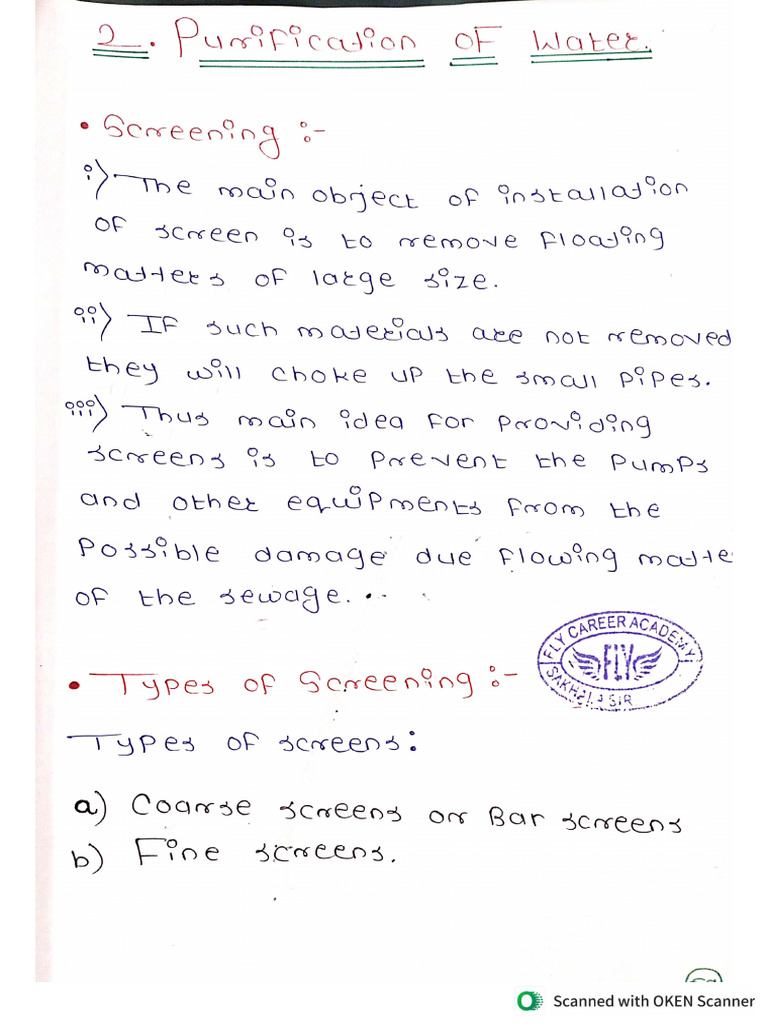 2. Purification OF Water.
• Screening :-
i) The main object of installation
of screen is to remove floating
matters of large size.
ii) IF such materials are not removed
they will choke up the small pipes.
iii) Thus main idea for providing
screens is to prevent the pumps
and other equipments from the
possible damage due flowing matte
of the sewage...
FLY CAREER ACADEMY
FLY
SIR
• Types of Screening :-
Types of screens:
a) Coarse screens or Bar screens
b) Fine screens.
Scanned with OKEN Scanner